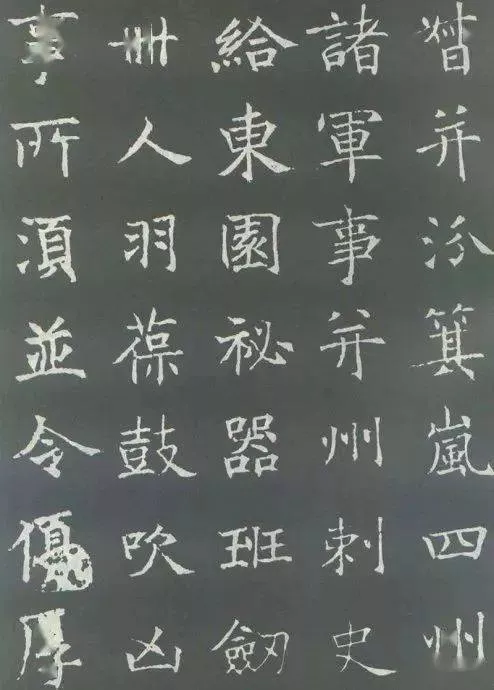 督并汾箕嵐四州
諸軍事并州刺史
給東園祕器班劒
卌人羽葆鼓吹凶
事所湏並令優厚